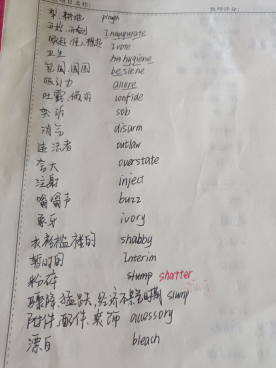 犁,耕地 plough
开始,开创 Inaugurate
Ivore
卫生 hygiene
包围,围困 besiege
吸引力 allure
吐露,倾诉 confide
哭诉 sob
消气 disarm
违法者 outlaw
夸大 overstate
注射 inject
嗡嗡声 buzz
象牙 ivory
衣衫褴褛的 shabby
暂时的 Interim
粉碎 slump shatter
骤降,猛跌,经济不景气时期 slump
附件,配件,装饰 accessory
漂白 bleach